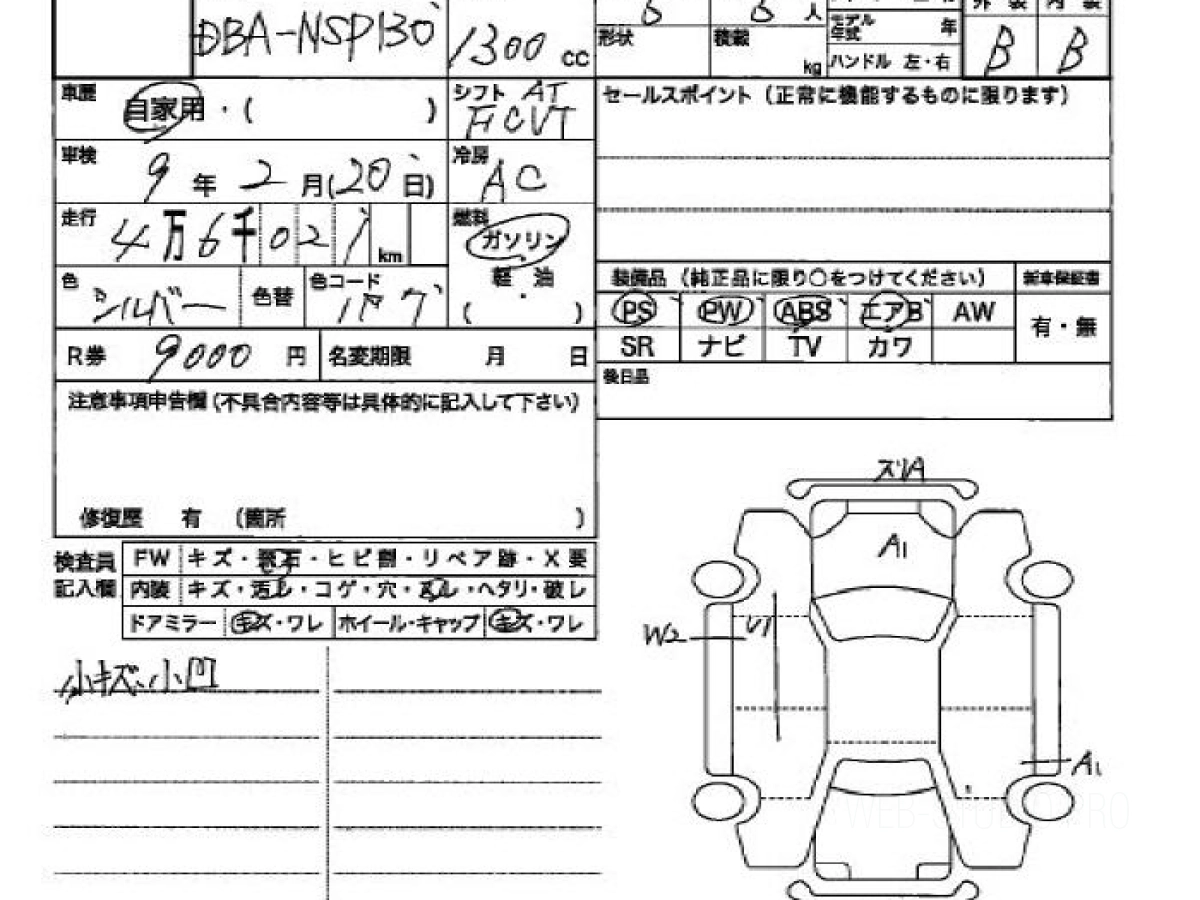 DBA-NSP130
1300 cc
形状
積載 kg
モデル年式 年
ハンドル 左・右
外装 内装
B B
車歴 自家用・( )
シフト AT
FCVT
車検 9年2月(20日)
冷房 AC
走行 4万6千021 km
燃料 ガソリン
軽油
( )
色 シルバー
色替
色コード 1F7
R券 9000円
名変期限 月 日
注意事項申告欄(不具合内容等は具体的に記入して下さい)
修復歴 有 (箇所 )
セールスポイント(正常に機能するものに限ります)
装備品(純正品に限り○をつけてください)
新車保証書
PS PW ABS エアB AW
有・無
SR ナビ TV カワ
後日品
検査員記入欄
FW キズ・飛石・ヒビ割・リペア跡・X要
内装 キズ・汚レ・コゲ・穴・スレ・ヘタリ・破レ
ドアミラー キズ・ワレ ホイール・キャップ キズ・ワレ
小キズ、小凹
スリA
A1
W2
U1
A1
WEB-STUDIO.PRO